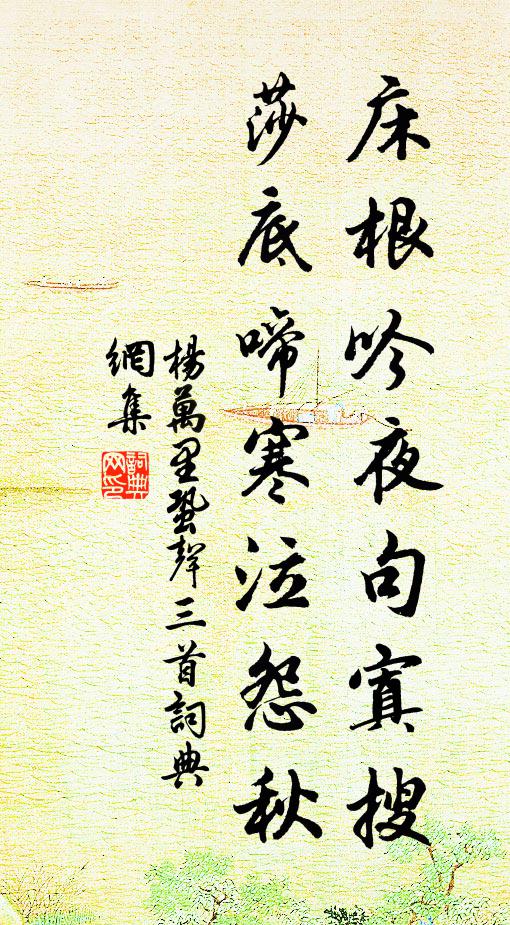 床根吟夜句寘搜
莎底啼寒泣怨秋
楊萬里蛩聲三首詞典
網集
詞典网印